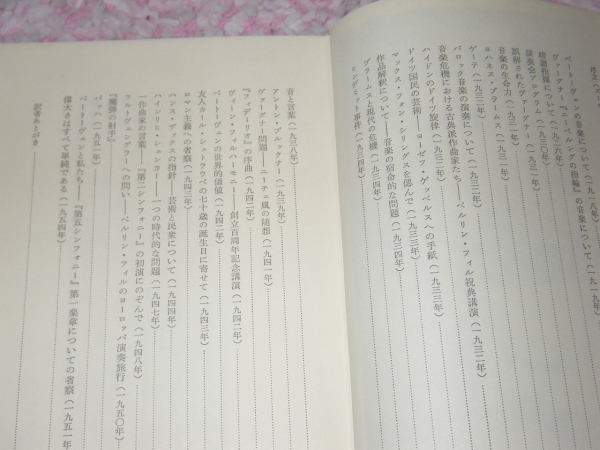 序文
ベートーヴェンの音楽について（一九一八年）
ヴァーグナー『ニーベルングの指輪』の音楽について（一九一九年）
暗譜指揮について（一九三〇年）
演奏会プログラム（一九三〇年）
誤解されたヴァーグナー（一九三一年）
音楽の生命力（一九三一年）
ヨハネス・ブラームス（一九三一年）
ゲーテ（一九三二年）
バロック音楽の演奏について（一九三二年）
音楽危機における古典派作曲家たち――ベルリン・フィル祝典講演（一九三二年）
ハイドンのドイツ旋律（一九三二年）
ドイツ国民の芸術――ヨーゼフ・ゲッベルスへの手紙（一九三三年）
マックス・フォン・シリングスを偲んで（一九三三年）
作品解釈について――音楽の宿命的な問題（一九三四年）
ブラームスと現代の危機（一九三四年）
ヒンデミット事件（一九三四年）
音と言葉（一九三八年）
アントン・ブルックナー（一九三九年）
ヴァーグナー問題――ニーチェ風の随想（一九四一年）
『フィデーリオ』の序曲（一九四二年）
ヴィーン・フィルハーモニー――創立百周年記念講演（一九四二年）
ベートーヴェンの世界的価値（一九四二年）
友人カール・シュトラウベの七十歳の誕生日に寄せて（一九四三年）
ロマン主義への省察（一九四三年）
ハンス・ザックスの指針――芸術と民衆について（一九四四年）
ハインリヒ・シェンカー――一つの時代的な問題（一九四七年）
一作曲家の言葉――『第二シンフォニー』の初演にのぞんで（一九四八年）
フルトヴェングラーへの問い――ベルリン・フィルのヨーロッパ演奏旅行（一九五〇年）
『魔弾の射手』
バッハ（一九五一年）
ベートーヴェンと私たち――『第五シンフォニー』第一楽章についての省察（一九五一年
偉大さはすべて単純である（一九五四年）
訳者あとがき